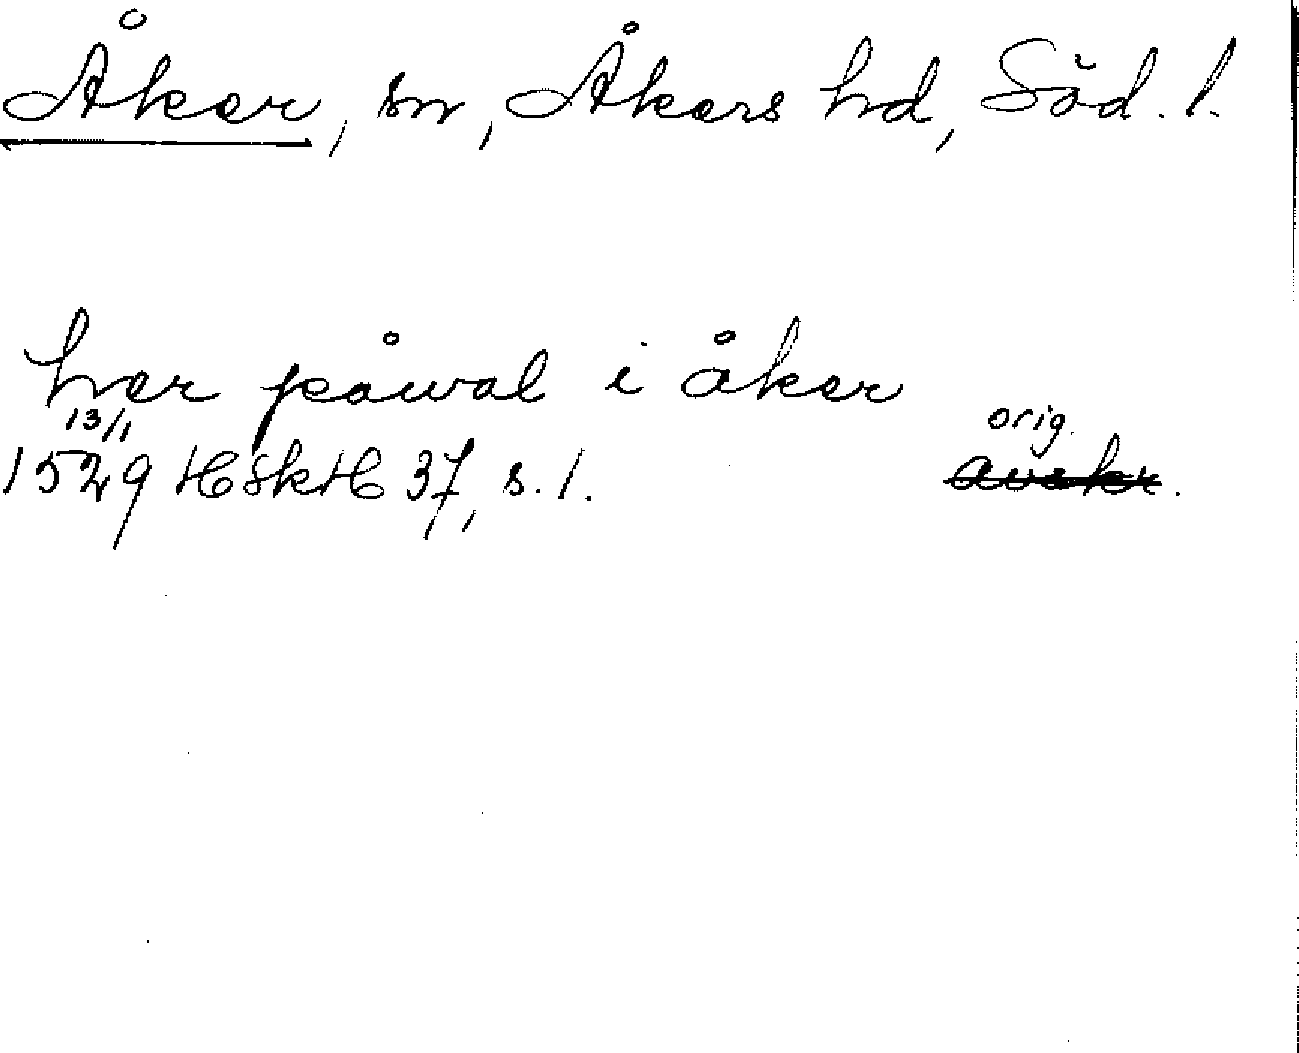 Åker, sn, Åkers hd, Söd. l.
her påwal i åker
13/1 orig.
1529 HSkH 37, s. 1. avskr.